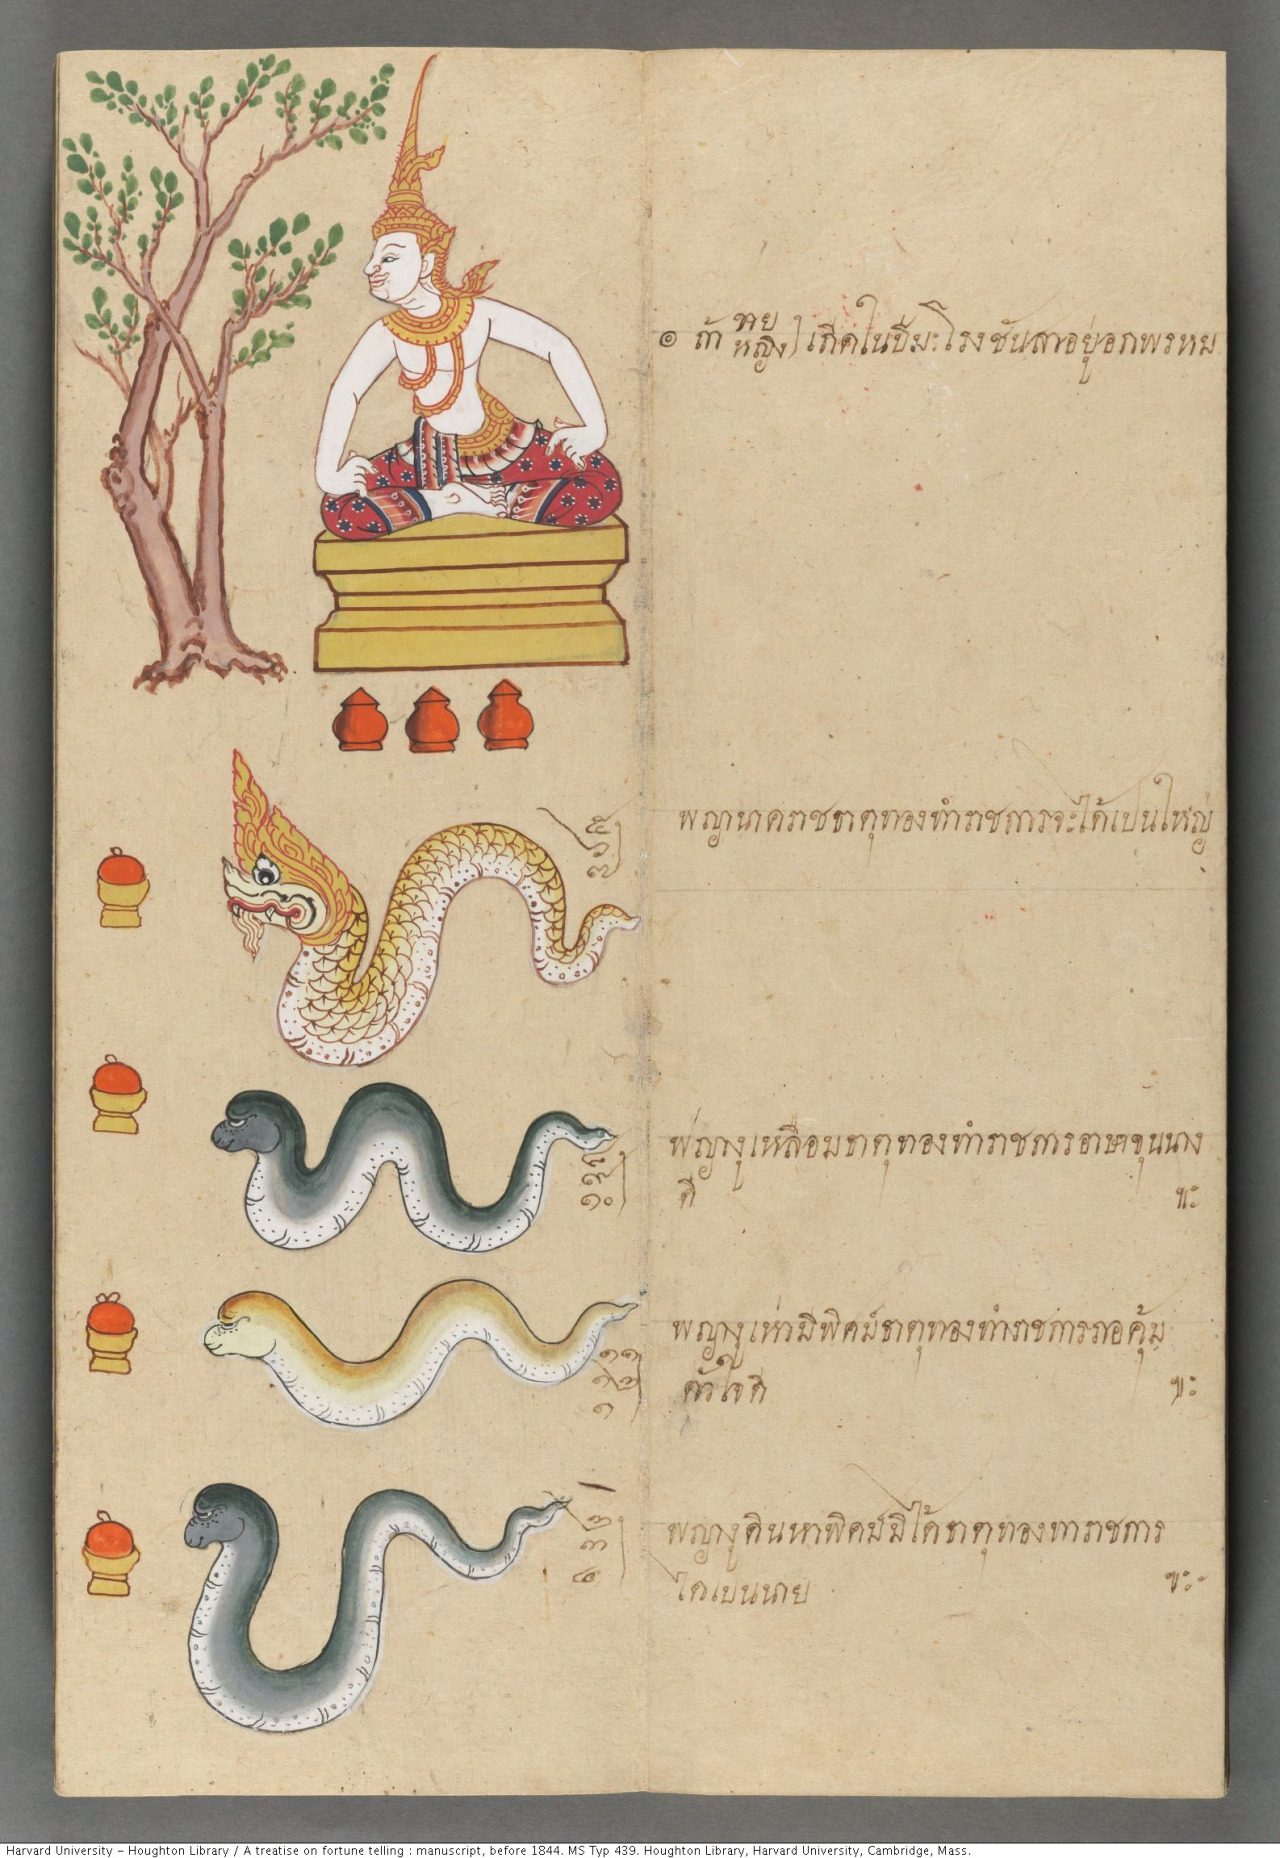 ๑ ถ้า ชาย หญิง) เกิดในปีมะโรงชันสาอยู่อกพรหม
๕
๖
๗
พญานาคราชธาตุทองทำราชการจะได้เปนใหญ่
๘
๙
๑๐
พญางูเหลือมธาตุทองทำราชการอาษาขุนนาง
ดี ฯะ
๑๑
๑๒
๑
พญางูเห่ามีพิศม์ธาตุทองทำราชการภอคุ้ม
ตัวใจดี ฯะ
๒
๓
๔
พญางูดินหาพิศม์มิได้ธาตุทองทำราชการ
ได้เปนนาย ฯะ
Harvard University - Houghton Library / A treatise on fortune telling : manuscript, before 1844. MS Typ 439. Houghton Library, Harvard University, Cambridge, Mass.